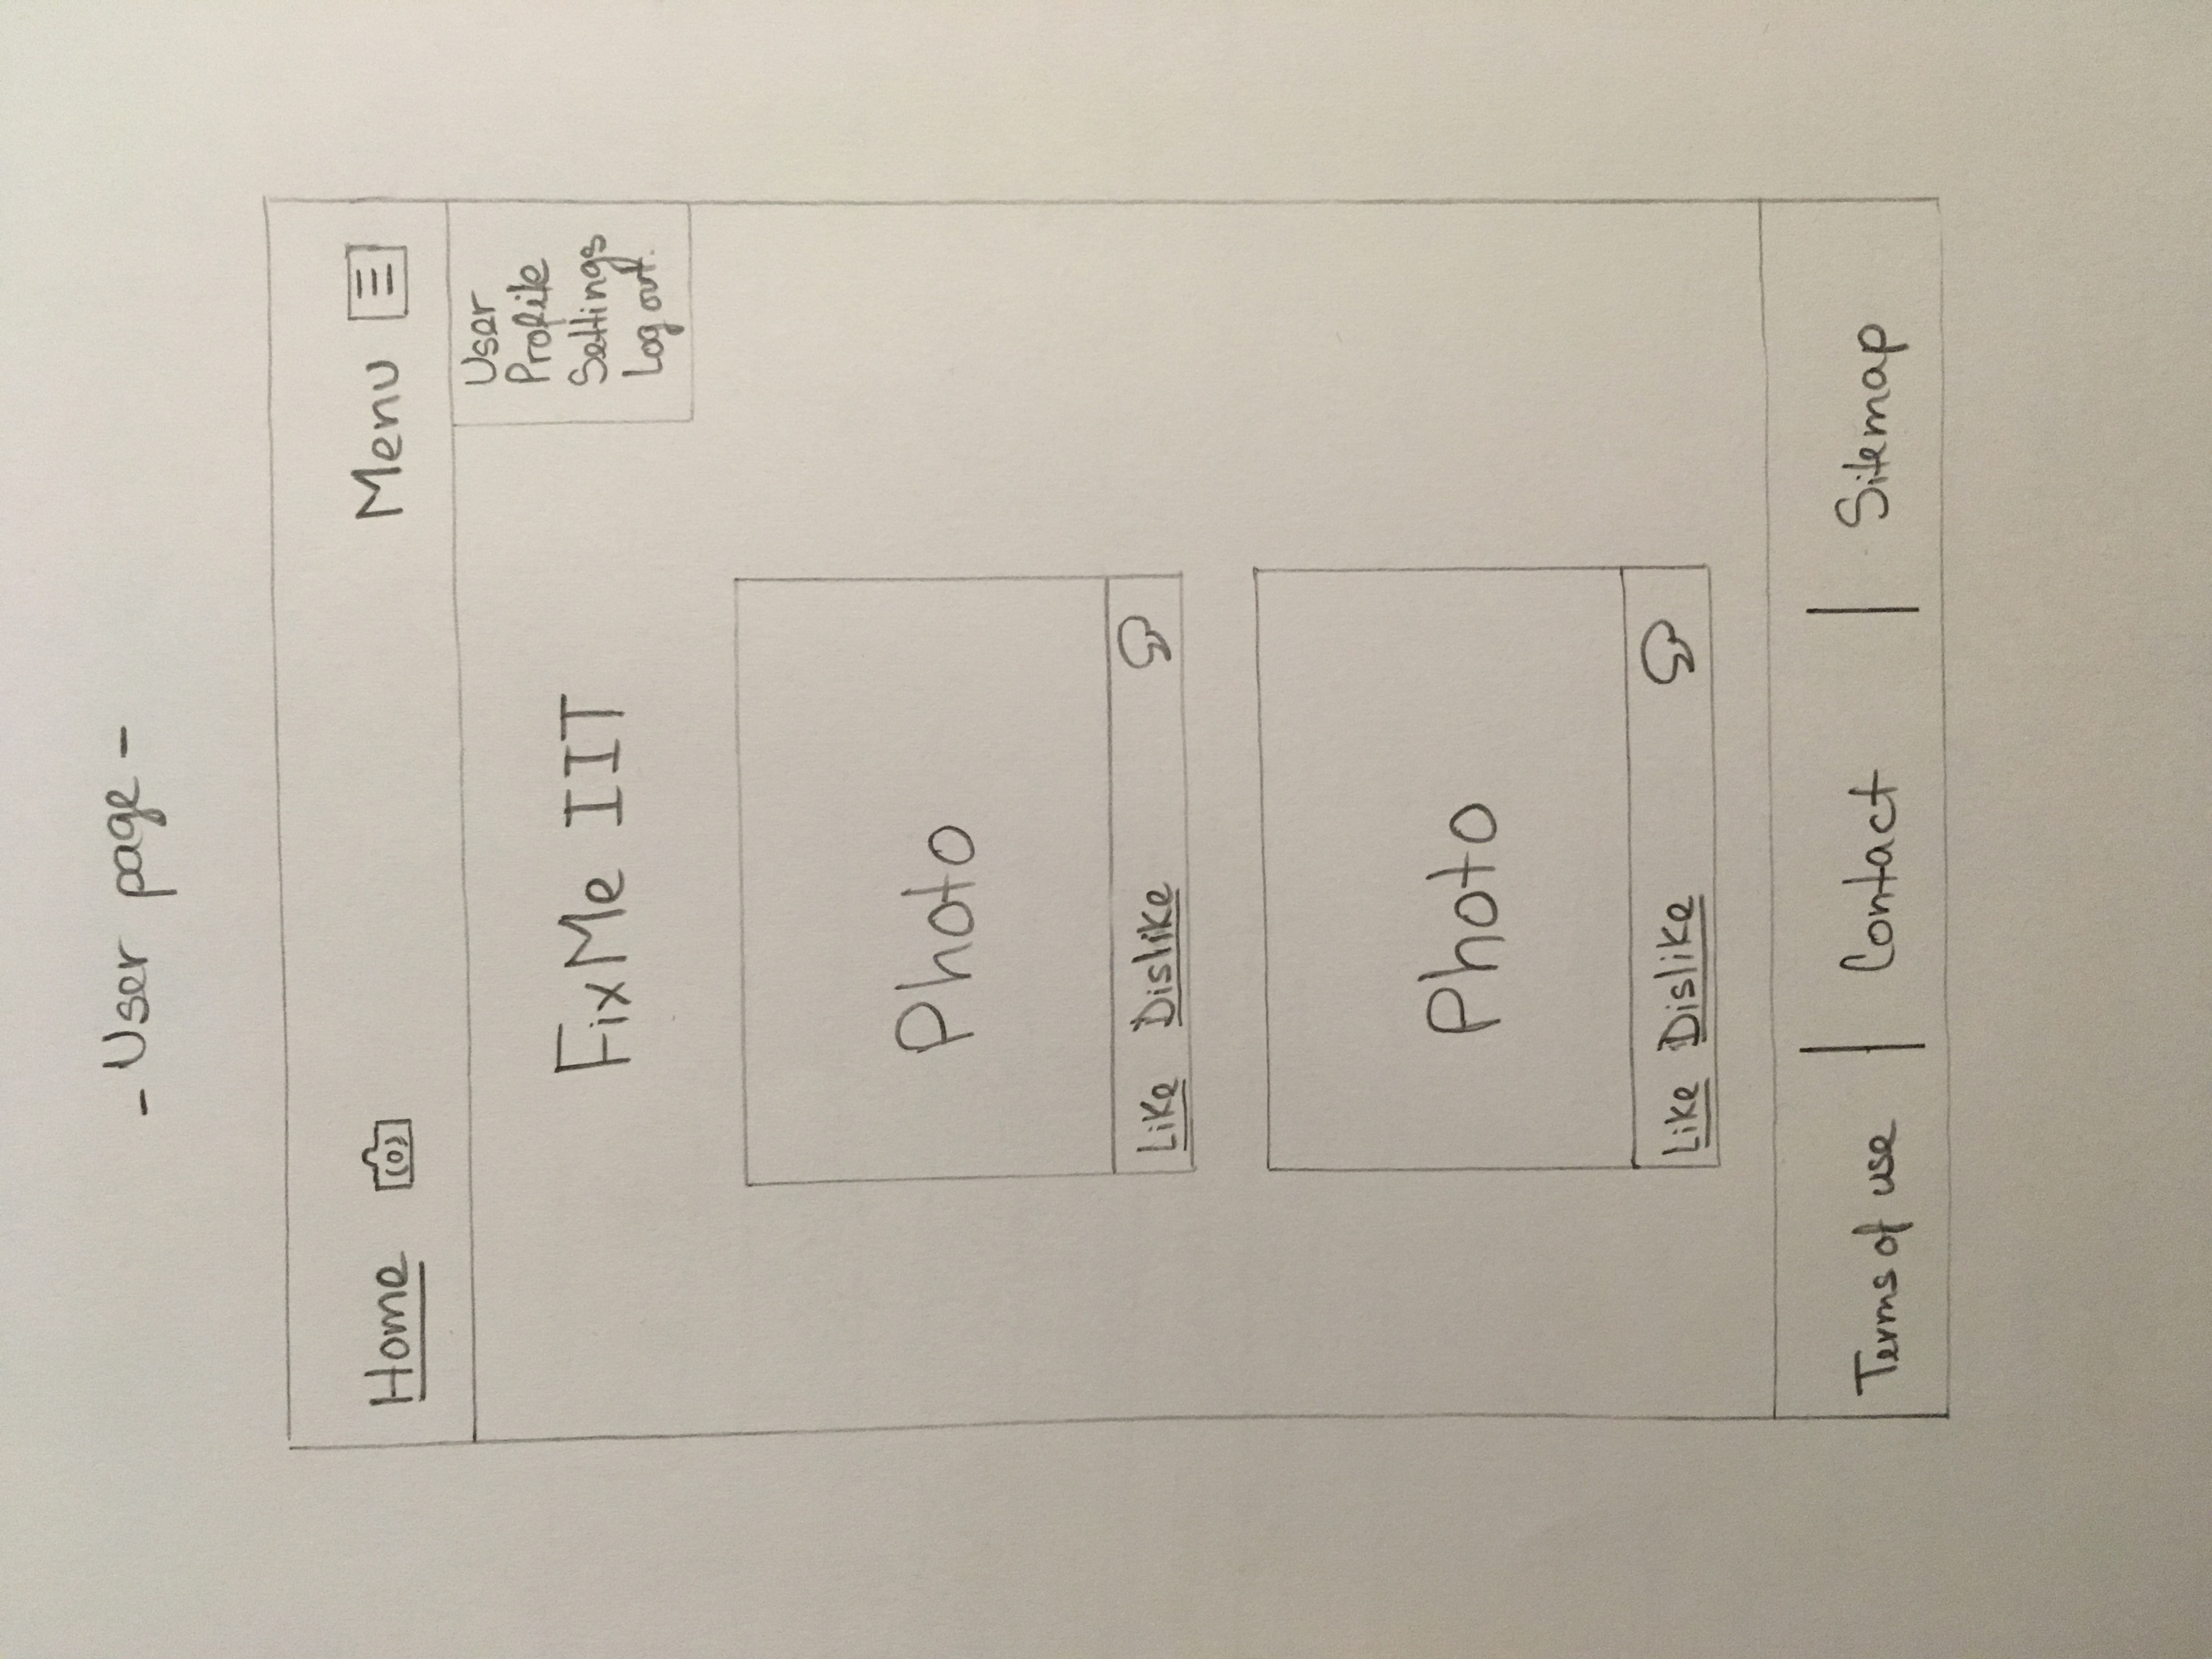 - User page -
Home Menu
User
Profile
Settings
Log out.
FixMe IIT
Photo
Like Dislike
Photo
Like Dislike
Terms of use | Contact | Sitemap